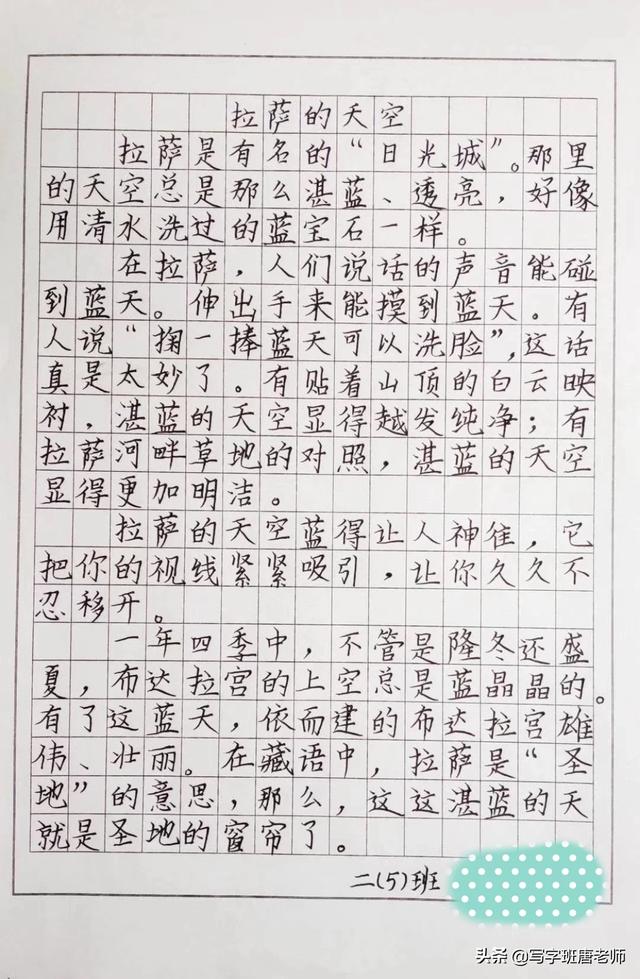 拉萨的天空
拉萨是有名的“日光城”。那里
的天空总是那么湛蓝、透亮，好像
用清水洗过的蓝宝石一样。
在拉萨，人们说话的声音能碰
到蓝天。伸出手来能摸到蓝天。有
人说“掬一捧蓝天可以洗脸”，这话
真是太妙了。有贴着山顶的白云映
衬，湛蓝的天空显得越发纯净；有
拉萨河畔草地的对照，湛蓝的天空
显得更加明洁。
拉萨的天空蓝得让人神往，它
把你的视线紧紧吸引，让你久久不
忍移开。
一年四季中，不管是隆冬还盛
夏，布达拉宫的上空总是蓝晶晶的。
有了这蓝天，依而建的布达拉宫雄
伟、壮丽。在藏语中，拉萨是“圣
地”的意思，那么，这这湛蓝的天
就是圣地的窗帘了。
二(5)班
头条@写字班唐老师